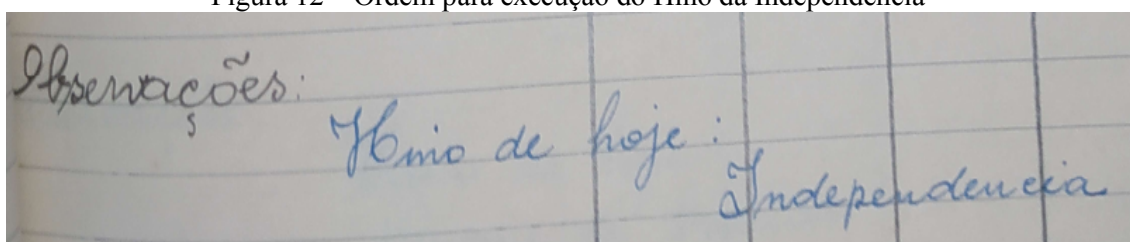 Figura 12 – Ordem para execução do Hino da Independência
Observações:
Hino de hoje:
Independencia